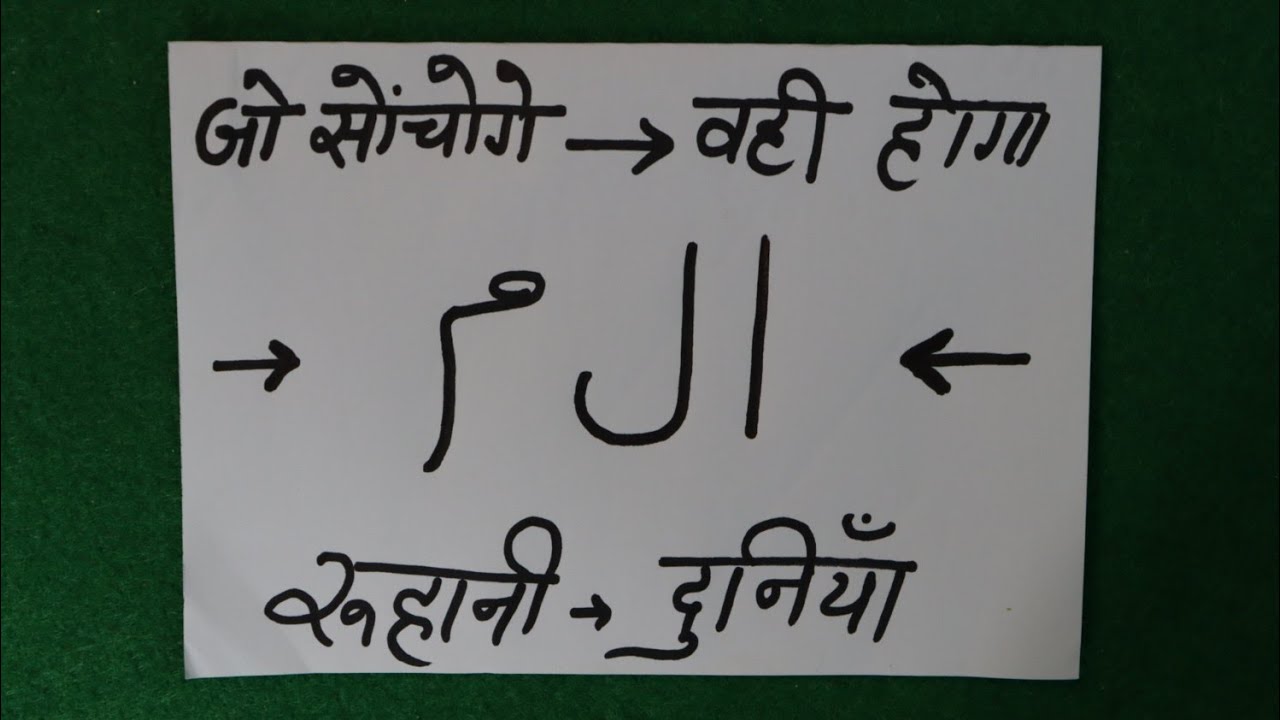 जो सोंचोगे → वही होगा
→ ا ل م ←
रूहानी → दुनियाँ